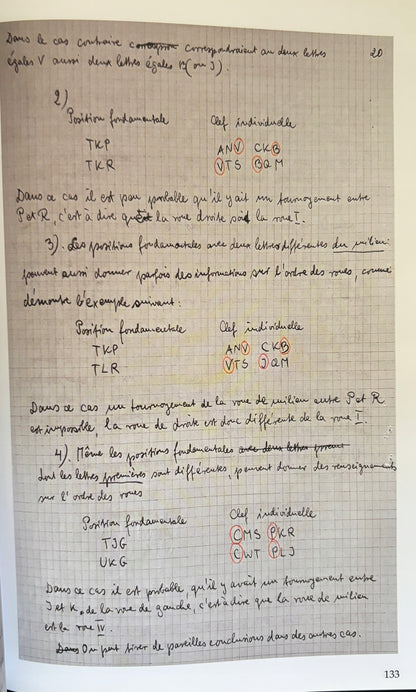 Dans le cas contraire correspondraient au deux lettres
20
égales V aussi deux lettres égales B (ou J).
2)
Position fondamentale Clef individuelle
TKP ANV CKB
TKR VTS BQM
Dans ce cas il est peu probable qu'il y ait un tournoyement entre
P et R, c'est à dire que la roue droite soit la roue I.
3). Les positions fondamentales avec deux lettres différentes du milieu
peuvent aussi donner parfois des informations sur l'ordre des roues, comme
démontre l'exemple suivant:
Position fondamentale Clef individuelle
TKP ANV CKB
TLR VTS JQM
Dans ce cas un tournoyement de la roue de milieu entre P et R
est impossible, la roue de droite est donc différente de la roue I.
4). Même les positions fondamentales avec deux lettres
dont les lettres premières sont différentes, peuvent donner des renseignements
sur l'ordre des roues
Position fondamentale Clef individuelle
TJG CMS PKR
UKG CWT PLJ
Dans ce cas il est probable qu'il y avait un tournoyement entre
J et K, de la roue de gauche, c'est à dire que la roue de milieu
est la roue IV.
Dans On peut tirer de pareilles conclusions dans des autres cas.
133